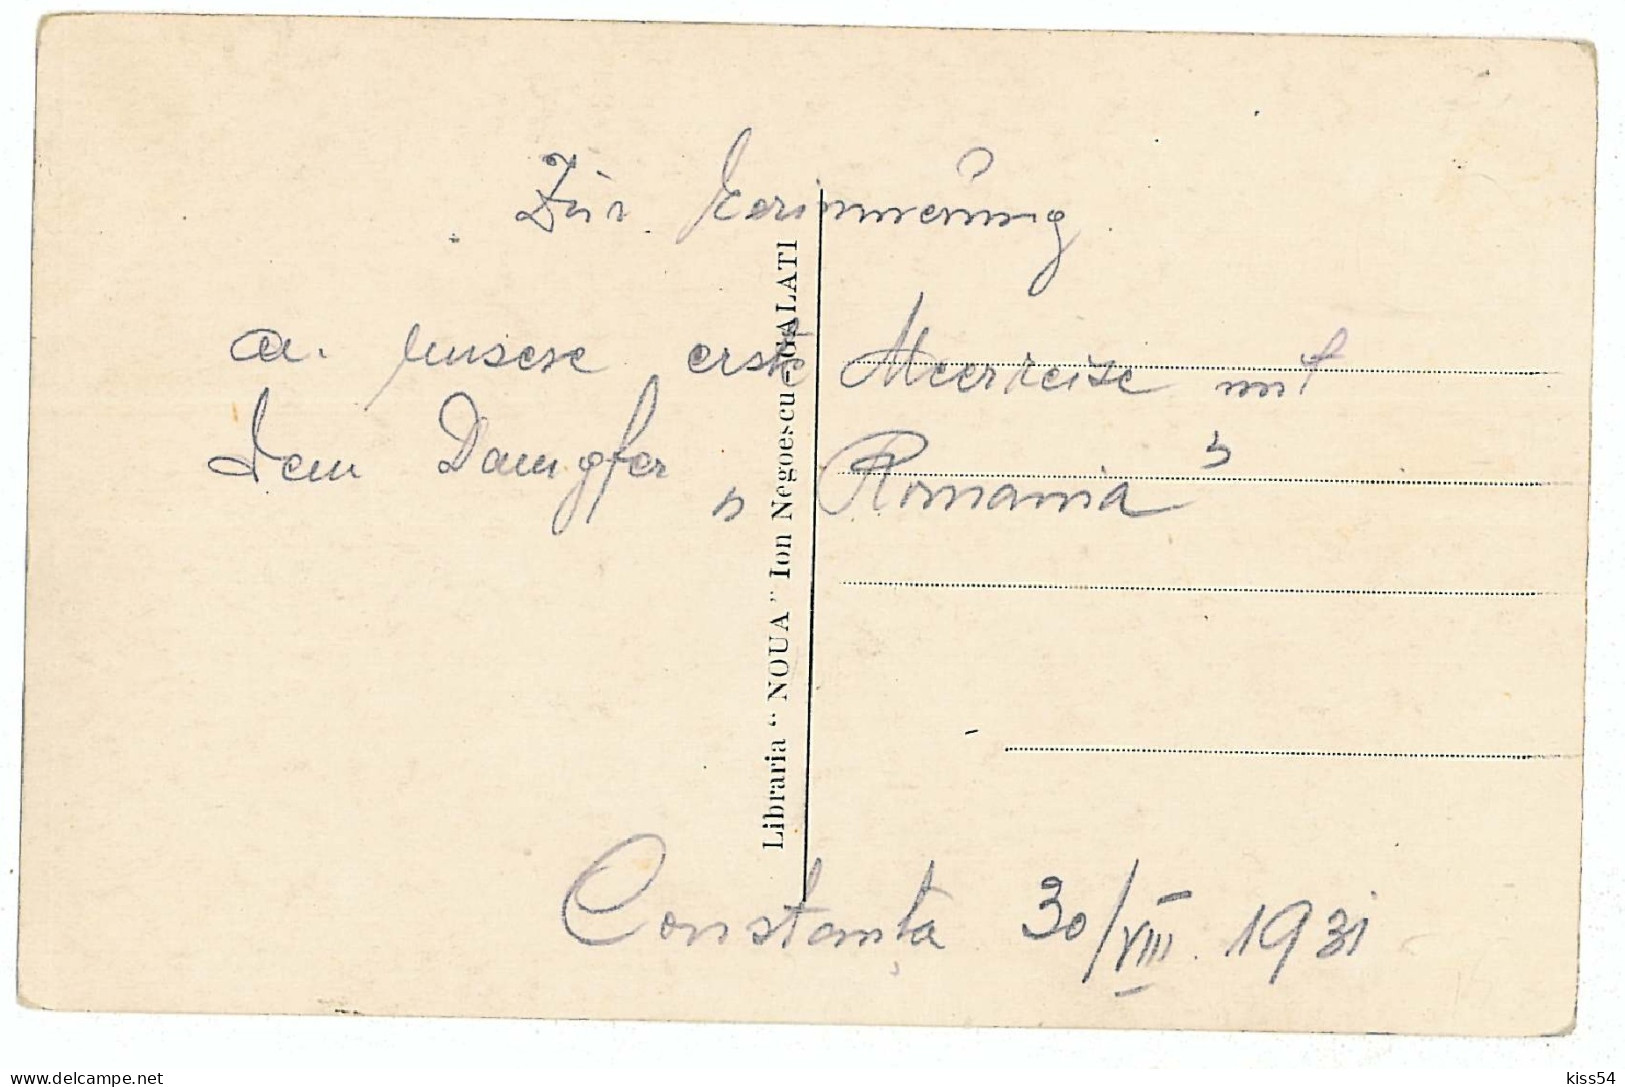 Zur Erinnerung
a. unsere erste Meerreise mit
dem Dampfer „Romania"
Constanța 30/VIII. 1931
Libraria “ NOUA ” Ion Negoescu - GALATI
www.delcampe.net
kiss54